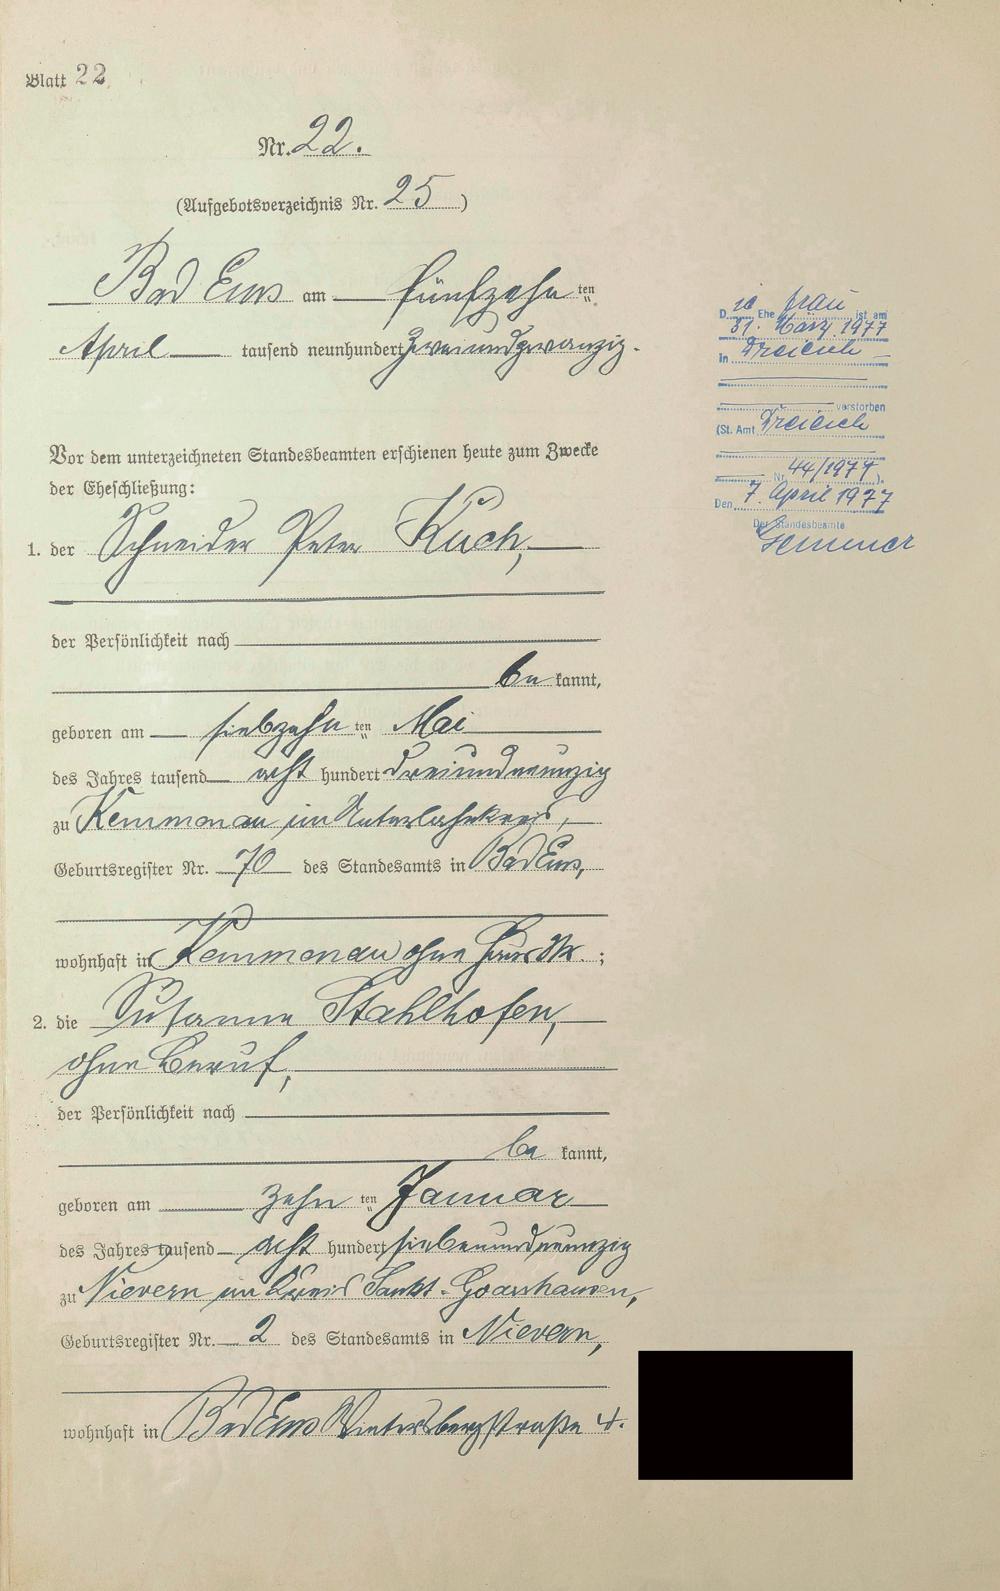 Blatt 22
Nr. 22.
(Aufgebotsverzeichnis Nr. 25)
Bad Ems am fünfzehn ten
April tausend neunhundert zweiundzwanzig.
Vor dem unterzeichneten Standesbeamten erschienen heute zum Zwecke
der Eheschließung:
1. der Schneider Peter Kuch,
der Persönlichkeit nach
be kannt,
geboren am siebzehn ten Mai
des Jahres tausend acht hundert dreiundneunzig
zu Kemmenau im Unterlahnkreis,
Geburtsregister Nr. 70 des Standesamts in Bad Ems,
wohnhaft in Kemmenau ohne Haus Nr.;
2. die Susanna Stahlhofen,
ohne Beruf,
der Persönlichkeit nach
be kannt,
geboren am zehn ten Januar
des Jahres tausend acht hundert siebenundneunzig
zu Nievern im Kreis Sankt-Goarshausen,
Geburtsregister Nr. 2 des Standesamts in Nievern,
wohnhaft in Bad Ems Wintersbergstraße 4.
D. ie Ehe frau ist am
31. März 1977
in Dreieich
verstorben
(St. Amt Dreieich
Nr. 44/1977).
Den 7. April 1977
Der Standesbeamte